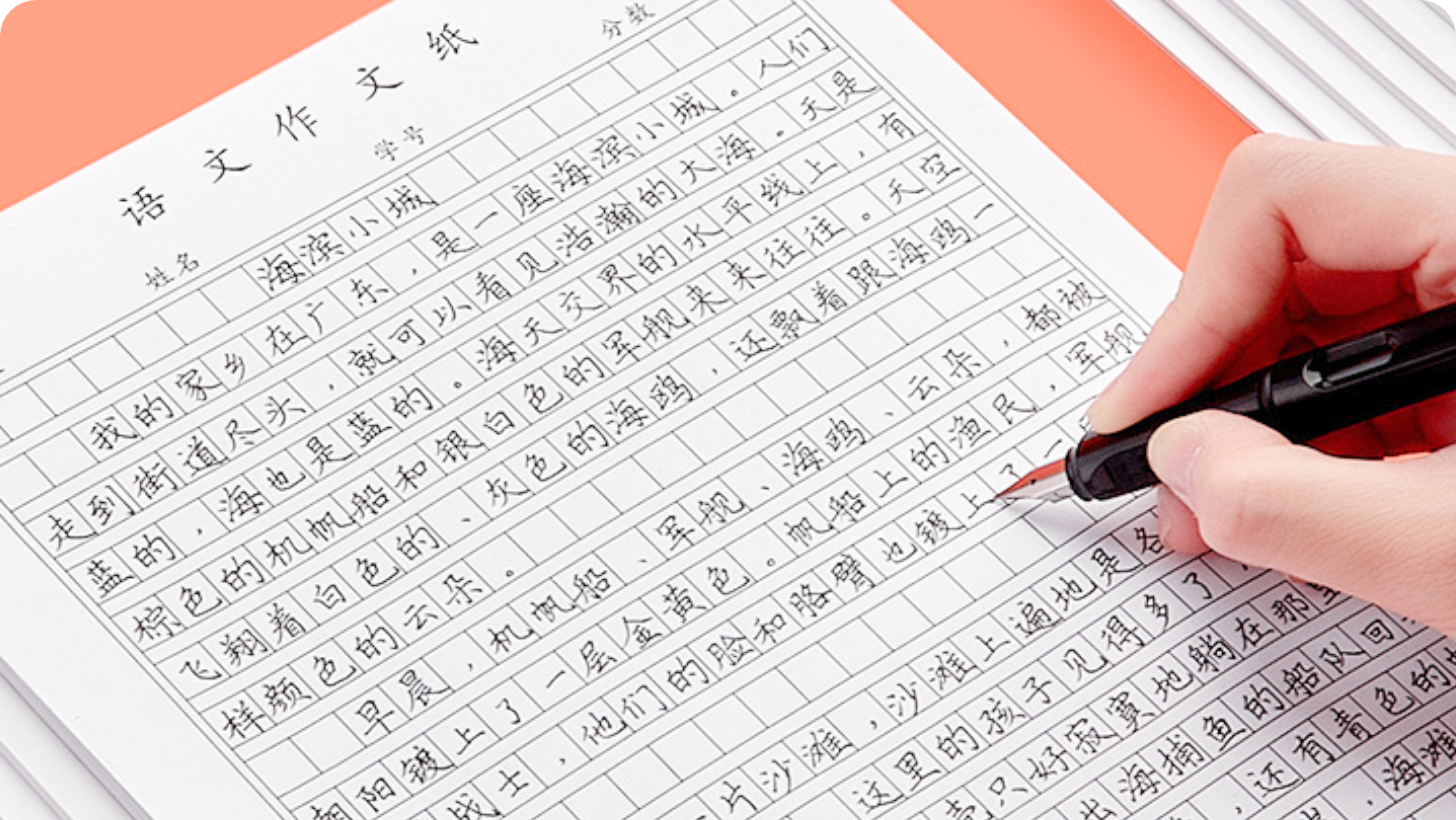 语文作文纸
姓名 学号 分数
海滨小城
我的家乡在广东，是一座海滨小城。人们
走到街道尽头，就可以看见浩瀚的大海。天是
蓝的，海也是蓝的。海天交界的水平线上，有
棕色的机帆船和银白色的军舰来来往往。天空
飞翔着白色的、灰色的海鸥，还飘着跟海鸥一
样颜色的云朵。
早晨，机帆船、军舰、海鸥、云朵，都被
朝阳镀上了一层金黄色。帆船上的渔民，军舰
战士，他们的脸和胳臂也镀上了一
片沙滩，沙滩上遍地是各
这里的孩子见得多了
壳只好寂寞地躺在那里
出海捕鱼的船队回
，还有青色的
、海滩